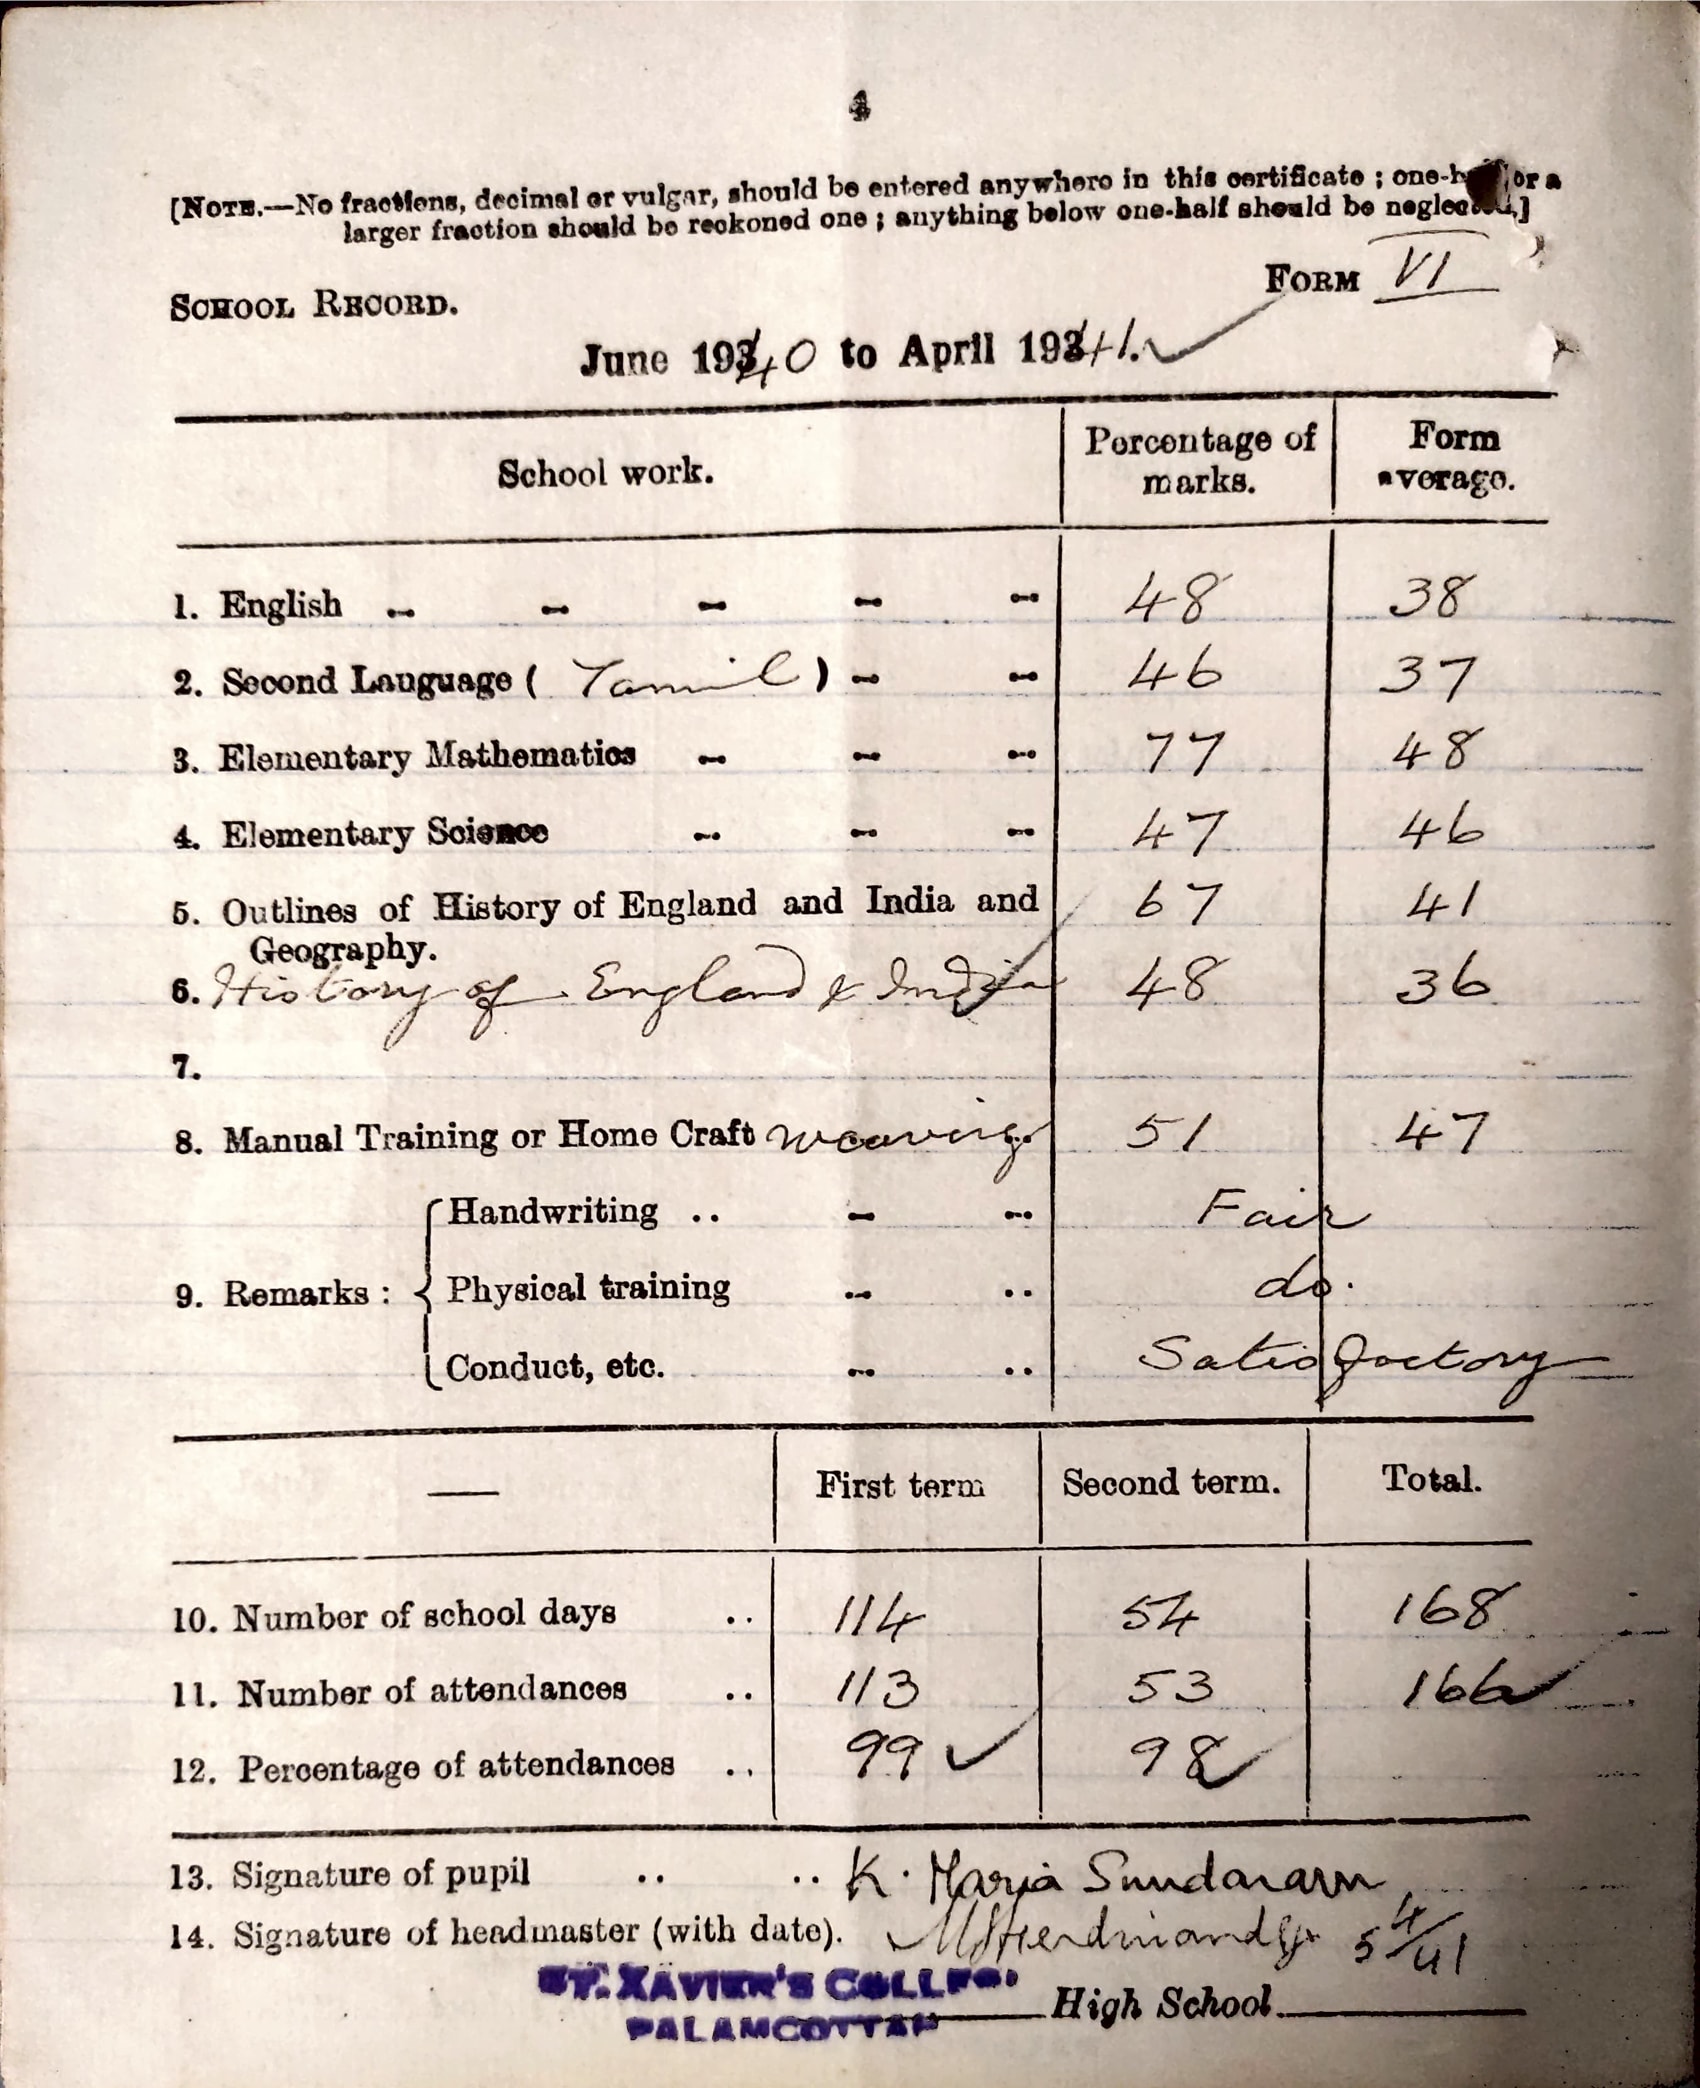 4
[NOTE.—No fractions, decimal or vulgar, should be entered anywhere in this certificate ; one-half or a
larger fraction should be reckoned one ; anything below one-half should be neglected.]
FORM VI
SCHOOL RECORD.
June 1940 to April 1941.
School work. Percentage of marks. Form average.
1. English .. .. .. .. .. 48 38
2. Second Language ( Tamil ) .. .. 46 37
3. Elementary Mathematics .. .. .. 77 48
4. Elementary Science .. .. .. 47 46
5. Outlines of History of England and India and 67 41
Geography.
6. History of England & India 48 36
7.
8. Manual Training or Home Craft weaving .. 51 47
Handwriting .. .. .. Fair
9. Remarks : Physical training .. .. do.
Conduct, etc. .. .. Satisfactory
— First term Second term. Total.
10. Number of school days .. 114 54 168
11. Number of attendances .. 113 53 166
12. Percentage of attendances .. 99 98
13. Signature of pupil .. .. K. Maria Sundaram
14. Signature of headmaster (with date). 5/4/41
ST. XAVIER'S COLLEGE
High School
PALAMCOTTAH